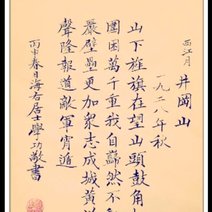 西江月
井岡山
一九二八年秋
山下旌旗在望山頭鼓角
圍困萬千重我自巋然不
嚴壁壘更加衆志成城黄
聲隆報道敵軍宵遁
丙申春日海右居士學功敬書